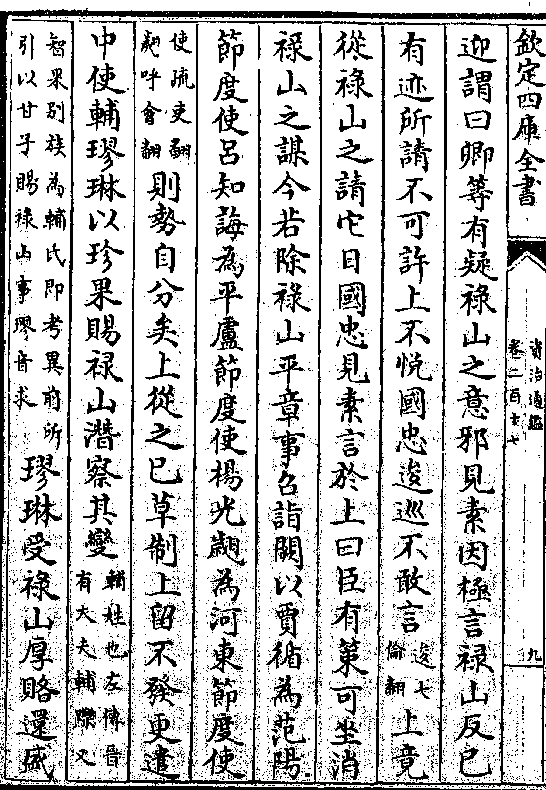 欽定四庫全書
資治通鑑
卷二百十七
九
迎謂曰卿等有疑祿山之意邪見素因極言祿山反已
有迹所請不可許上不悅國忠逡巡不敢言逡七倫翻上竟
從祿山之請他日國忠見素言於上曰臣有策可坐消
祿山之謀今若除祿山平章事召詣闕以賈循為范陽
節度使呂知誨為平盧節度使楊光翽為河東節度使
使疏吏翻翽呼會翻則勢自分矣上從之已草制上留不發更遣
中使輔璆琳以珍果賜祿山潛察其變輔姓也左傳晉有大夫輔躒又
智果別族為輔氏即考異前所引以甘子賜祿山事璆音求璆琳受祿山厚賂還盛